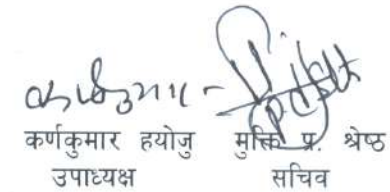 कर्णकुमार हयोजु मुक्ति प्र. श्रेष्ठ
उपाध्यक्ष सचिव